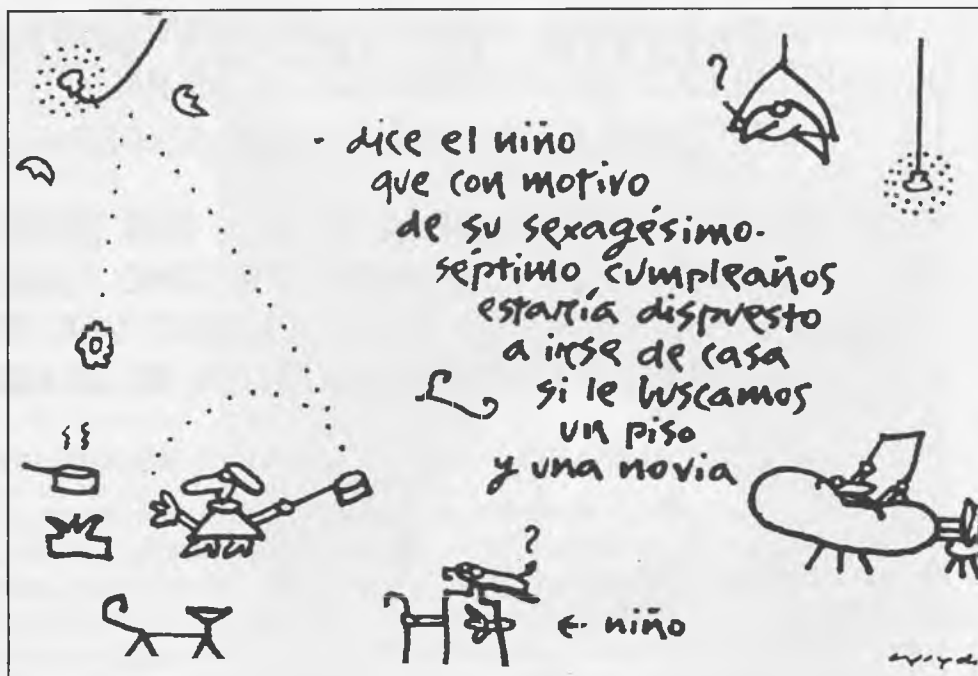 ?
- dice el niño
que con motivo
de su sexagésimo-
séptimo cumpleaños
estaría dispuesto
a irse de casa
si le buscamos
un piso
y una novia
?
← niño